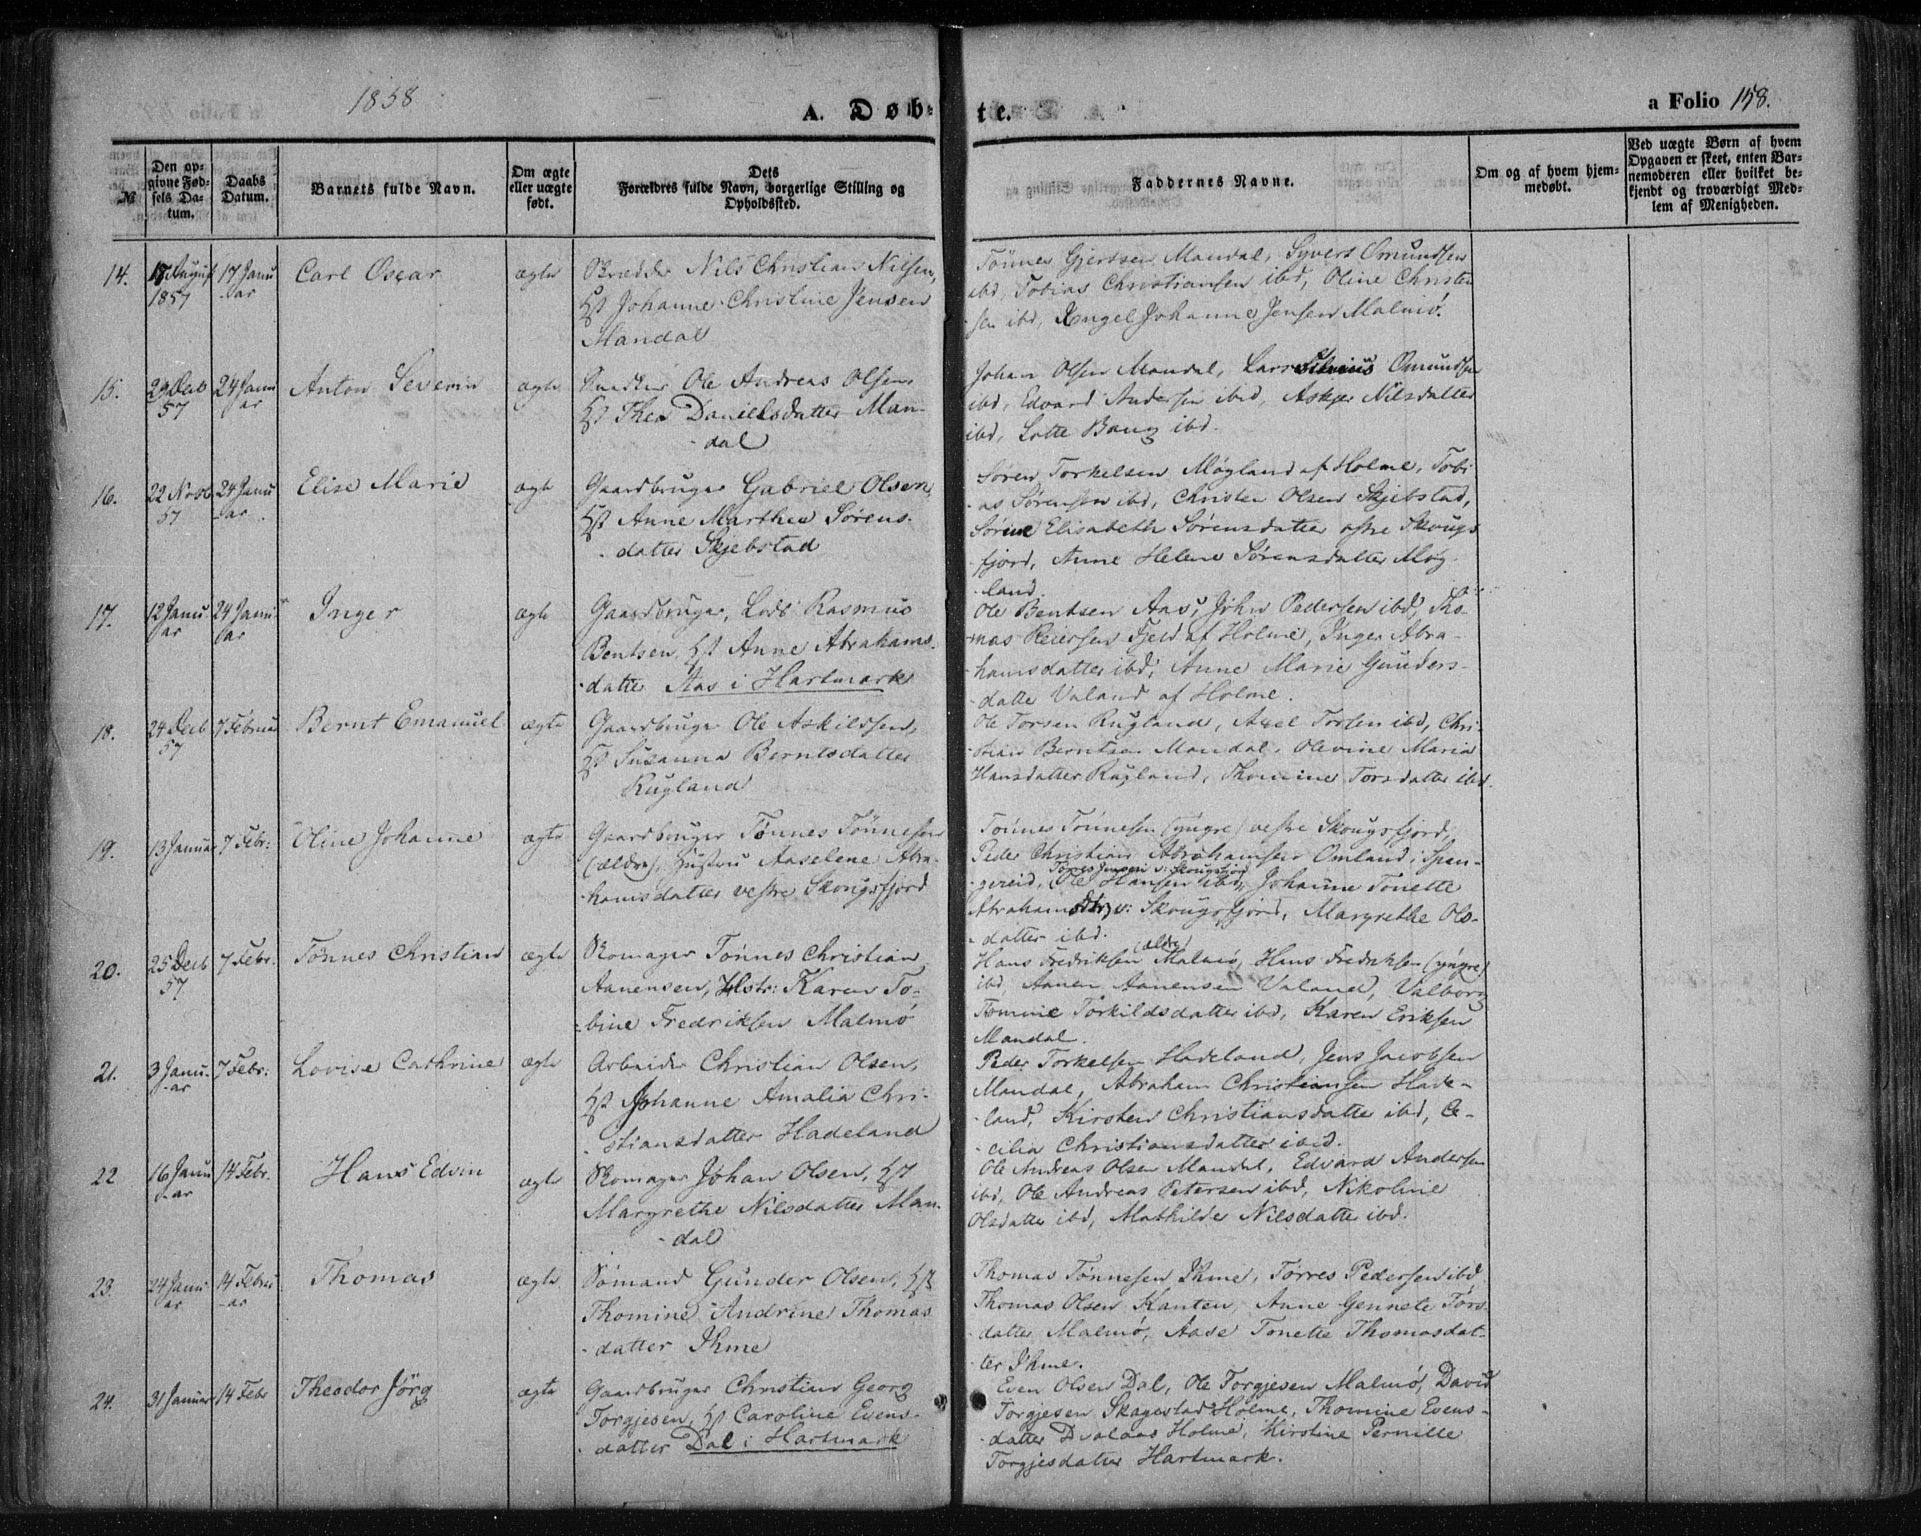 1858
A. Døbte.
a Folio 158.
№
Den opgivne Fødsels Datum.
Daabs Datum.
Barnets fulde Navn.
Om ægte eller uægte født.
Dets Forældres fulde Navn, borgerlige Stilling og Opholdssted.
Faddernes Navne.
Om og af hvem hjemmedøbt.
Ved uægte Børn af hvem Opgaven er skeet, enten Barnemoderen eller hvilket bekjendt og troværdigt Medlem af Menigheden.
14.
August 1857
17 Januar
Carl Oscar
ægte
Skrædder Nils Christian Nilsen,
Hst Johanne Christine Jensen
Mandal
Tönnes Gjertsen Mandal, Syvert Omundsen
ibd, Tobias Christiansen ibd, Oline Christen
sen ibd, Engel Johanne Jensen Malmö.
15.
29 Decb 57
24 Januar
Anton Severin
ægte
Snedker Ole Andreas Olsen,
Hst Thea Danielsdatter Man-
-dal
Johan Olsen Mandal, Lars Omundsen
ibd, Edvard Andersen ibid, Askjer Nilsdatter
ibd, Lotte Baug ibd.
16.
22 Novb 57
24 Januar
Elise Marie
ægte
Gaardbruger Gabriel Olsen,
Hst Anne Marthea Sørens-
-datter Skjebstad
Søren Torkelsen Møgland af Holme, Tobi-
-as Sørensen ibd, Christen Olsen Skjebstad,
Sørine Elisabeth Sørensdatter østre Skougs-
-fjord, Anne Helene Sørensdatter Møg-
-land
17.
12 Januar
24 Januar
Inger
ægte
Gaardbruger, Lods Rasmus
Bentsen, Hst Anne Abrahams-
-datter Aas i Hartmark
Ole Bentsen Aas, John Pedersen ibd, Tho-
-mas Reiersen Fjeld af Holme, Inger Abra-
-hamsdatter ibd, Anne Marie Gunders-
-datter Valand af Holme.
18.
24 Decb 57
7 Februar
Bernt Emanuel
ægte
Gaardbruger Ole Askildsen,
Hst Susanna Berntsdatter
Rugland
Ole Torsen Rugland, Axel Torsen ibd, Chri-
-stian Berntsen Mandal, Olevine Maria
Hansdatter Rugland, Thomine Torsdatter ibd.
19.
13 Januar
7 Febr:
Oline Johanne
ægte
Gaardbruger Tönnes Tönnesen
(ældre), Hustru Aaselene Abra-
hamsdatter vestre Skougsfjord
Tönnes Tönnesen (yngre) vestre Skougsfjord,
Peder Christian Abrahamsen Omland i Span-
-gereid, Ole Hansen ibd, Johanne Tonette
Torres Jensen v: Skougsfjord
Abrahamsdtr v: Skougsfjord, Margrethe Ols-
-datter ibd.
20.
25 Decb 57
7 Febr.
Tönnes Christian
ægte
Skomager Tönnes Christian
Aanensen, Hstr: Karen To-
-bine Fredriksen Malmö
Hans Fredriksen (ældre) Malmø, Hans Fredriksen (yngre)
ibd, Aanen Aanensen Valand, Valborg
Tomine Torkildsdatter ibd, Karen Eriksen
Mandal.
21.
3 Januar
7 Febr:
Lovise Cathrine
ægte
Arbeider Christian Olsen,
Hst Johanne Amalia Chri-
-stiansdatter Hadeland
Peder Torkelsen Hadeland, Jens Jacobsen
Mandal, Abraham Christiansen Hade-
-land, Kirsten Christiansdatter ibd, Ce-
-cilia Christiansdatter ibid.
22
16 Januar
14 Febr.
Hans Edvin
ægte
Skomager Johan Olsen, Hst
Margrethe Nilsdatter Man-
-dal
Ole Andreas Olsen Mandal, Edvard Andersen
ibd, Ole Andreas Petersen ibd, Nikoline
Olsdatter ibd, Mathilde Nilsdatter ibd.
23.
24 Januar
14 Februar
Thomas
ægte
Sömand Gunder Olsen, Hst
Thomine Andrine Thomas
-datter Ihme
Thomas Tönnesen Ihme, Torres Pedersen ibd
Thomas Olsen Kanten, Anne Gennete Tors-
datter Malmø, Aase Tonette Thomasdat-
ter Ihme.
24.
31 Januar
14 Febr
Theodor Jörg
ægte
Gaardbruger Christian Georg
Torgjesen, Hst Caroline Evens-
-datter Dal i Hartmark
Even Olsen Dal, Ole Torgjesen Malmø, David
Torgjesen Skagestad Holme, Thomine Evens-
-datter Holme, Kirstine Pernille
Torgjesdatter Hartmark.